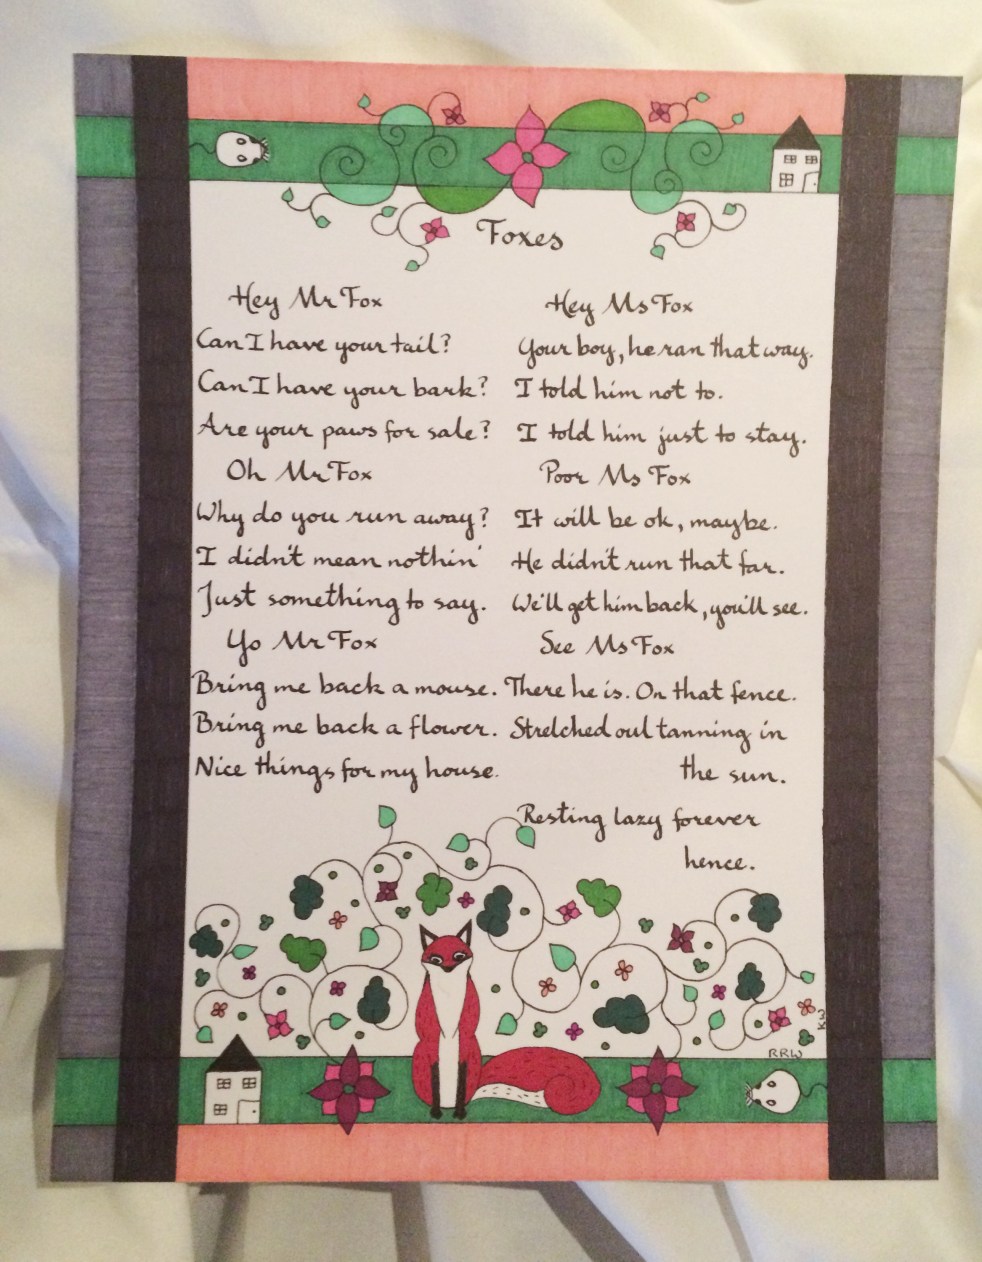 Foxes
Hey Mr Fox
Can I have your tail?
Can I have your bark?
Are your paws for sale?
Oh Mr Fox
Why do you run away?
I didn't mean nothin'
Just something to say.
Yo Mr Fox
Bring me back a mouse.
Bring me back a flower.
Nice things for my house.
Hey Ms Fox
Your boy, he ran that way.
I told him not to.
I told him just to stay.
Poor Ms Fox
It will be ok, maybe.
He didn't run that far.
We'll get him back, you'll see.
See Ms Fox
There he is. On that fence.
Stretched out tanning in
the sun.
Resting lazy forever
hence.
KW
RRW